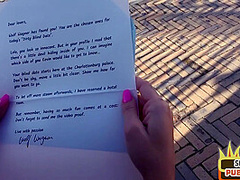 Dear lovers,
Wolf Wagner has found you! You are the chosen ones for
today's "Dirty Blind Date".
Lois, you look so innocent. But in your profile I read that
there's a little devil hiding inside of you. I can imagine
which side of you Conny would like to get to know.
Your blind date starts here at the Charlottenburg palace.
Don't be shy, move a little bit closer. Show me how far
you want to go.
To let off more steam afterwards, I have reserved a hotel
room.
But remember, having so much fun comes at a cost:
Don't forget to send me the video proof.
Live with passion
Wolf Wagner